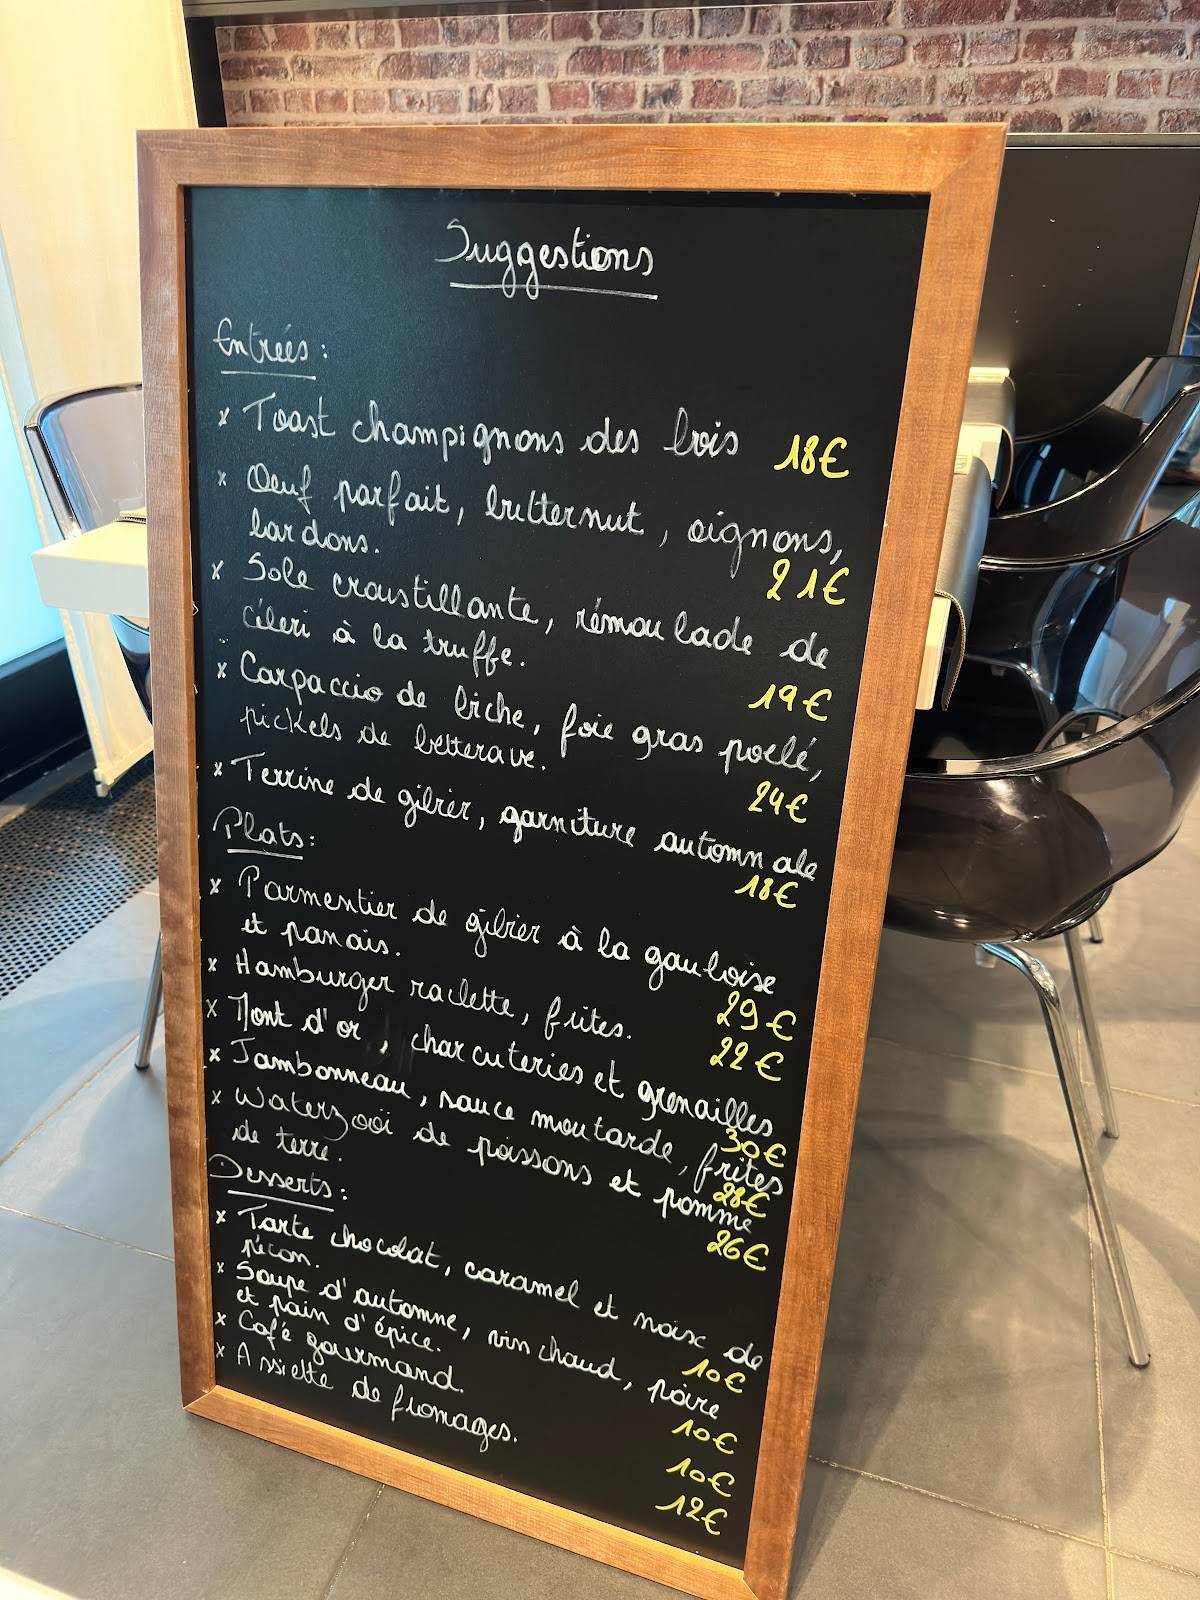 Suggestions
Entrées :
x Toast champignons des bois 18€
x Oeuf parfait, butternut, oignons,
lardons. 21€
x Sole croustillante, rémoulade de
céleri à la truffe. 19€
x Carpaccio de biche, foie gras poelé,
pickels de betterave. 24€
x Terrine de gibier, garniture automnale
18€
Plats :
x Parmentier de gibier à la gauloise
et panais. 29€
x Hamburger raclette, frites. 22€
x Mont d'or, charcuteries et grenailles
30€
x Jambonneau, sauce moutarde, frites
28€
x Waterzooï de poissons et pomme
de terre. 26€
Desserts :
x Tarte chocolat, caramel et noix de
pécan. 10€
x Soupe d'automne, vin chaud, poire
et pain d'épice. 10€
x Café gourmand. 10€
x Assiette de fromages. 12€